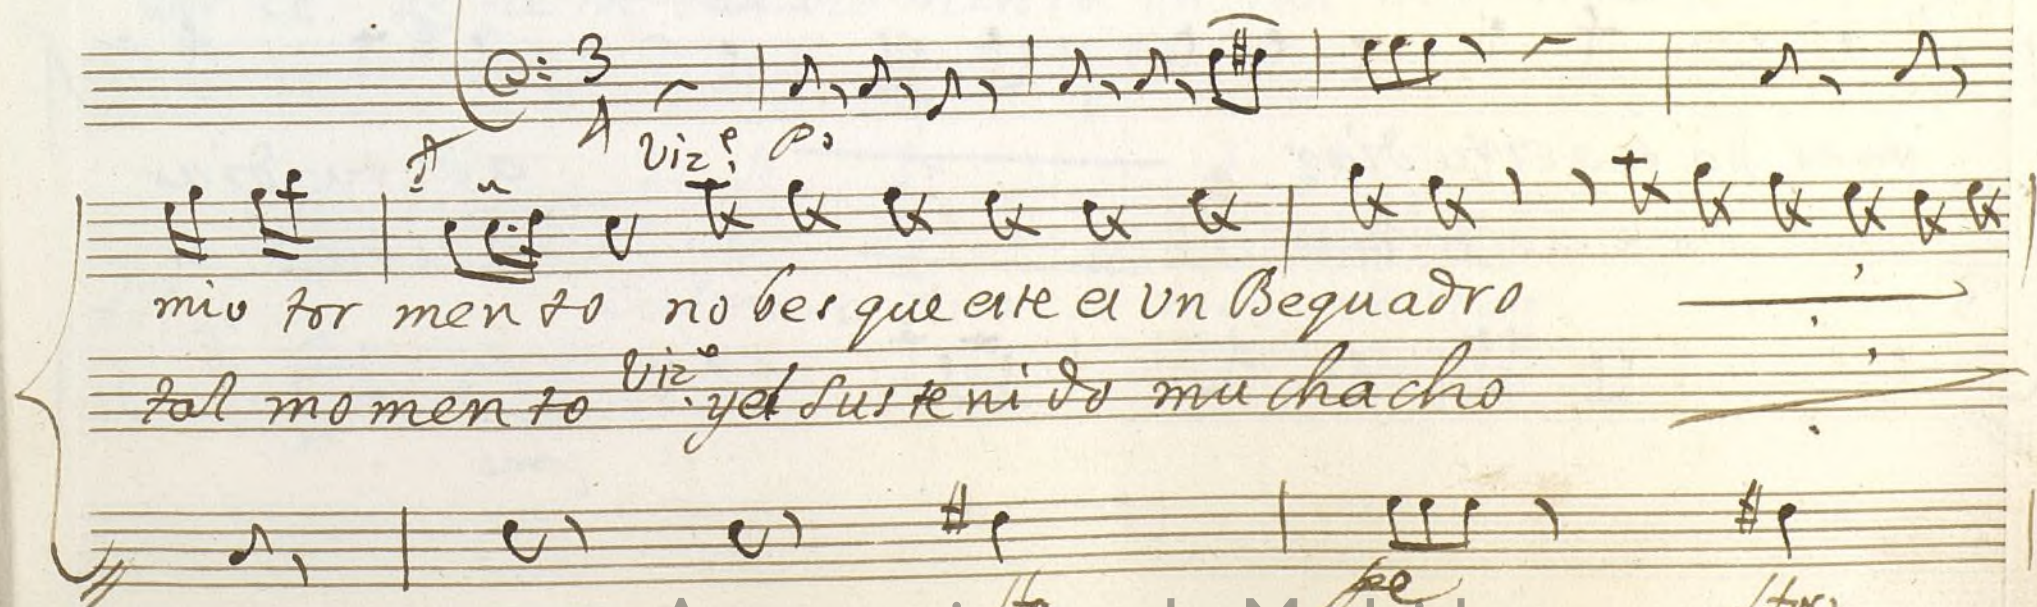 3
4
Viz.e P.o
mio tor men to no bes que este es Un Bequadro
tal mo men to Viz.e yel sus te ni do mu cha cho
pe